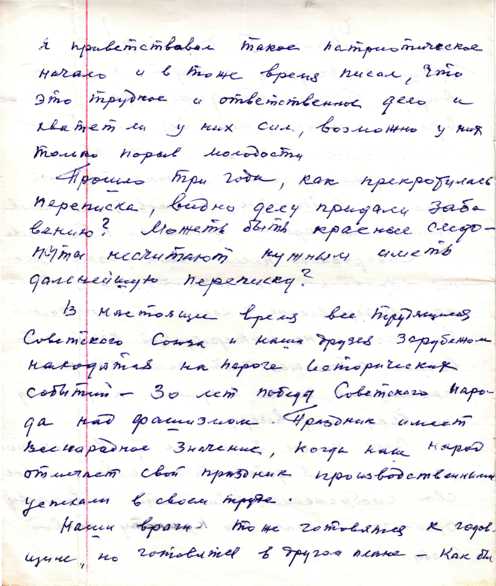 я приветствовал такое патриотическое
начало и в тоже время писал, что
это трудное и ответственное дело и
хватет ли у них сил, возможно у них
только порыв молодости
Прошло три года, как прекротилась
переписка, видно делу придали забы
вению? Можеть быть красные следо-
пыты несчитают нужным иметь
дальнейшую переписку?
В настоящие время все трудящиеся
Советского Союза и наши друзья зарубежом
находятся на пароге исторических
событий – 30 лет победы Советского наро-
да над фашизмом. Праздник имеет
всенародное значение, когда наш народ
отмечает свой праздник производственными
успехами в своем труде.
Наши враги тоже готовятся к годов-
щине, но готовятся в другом плане – как бы